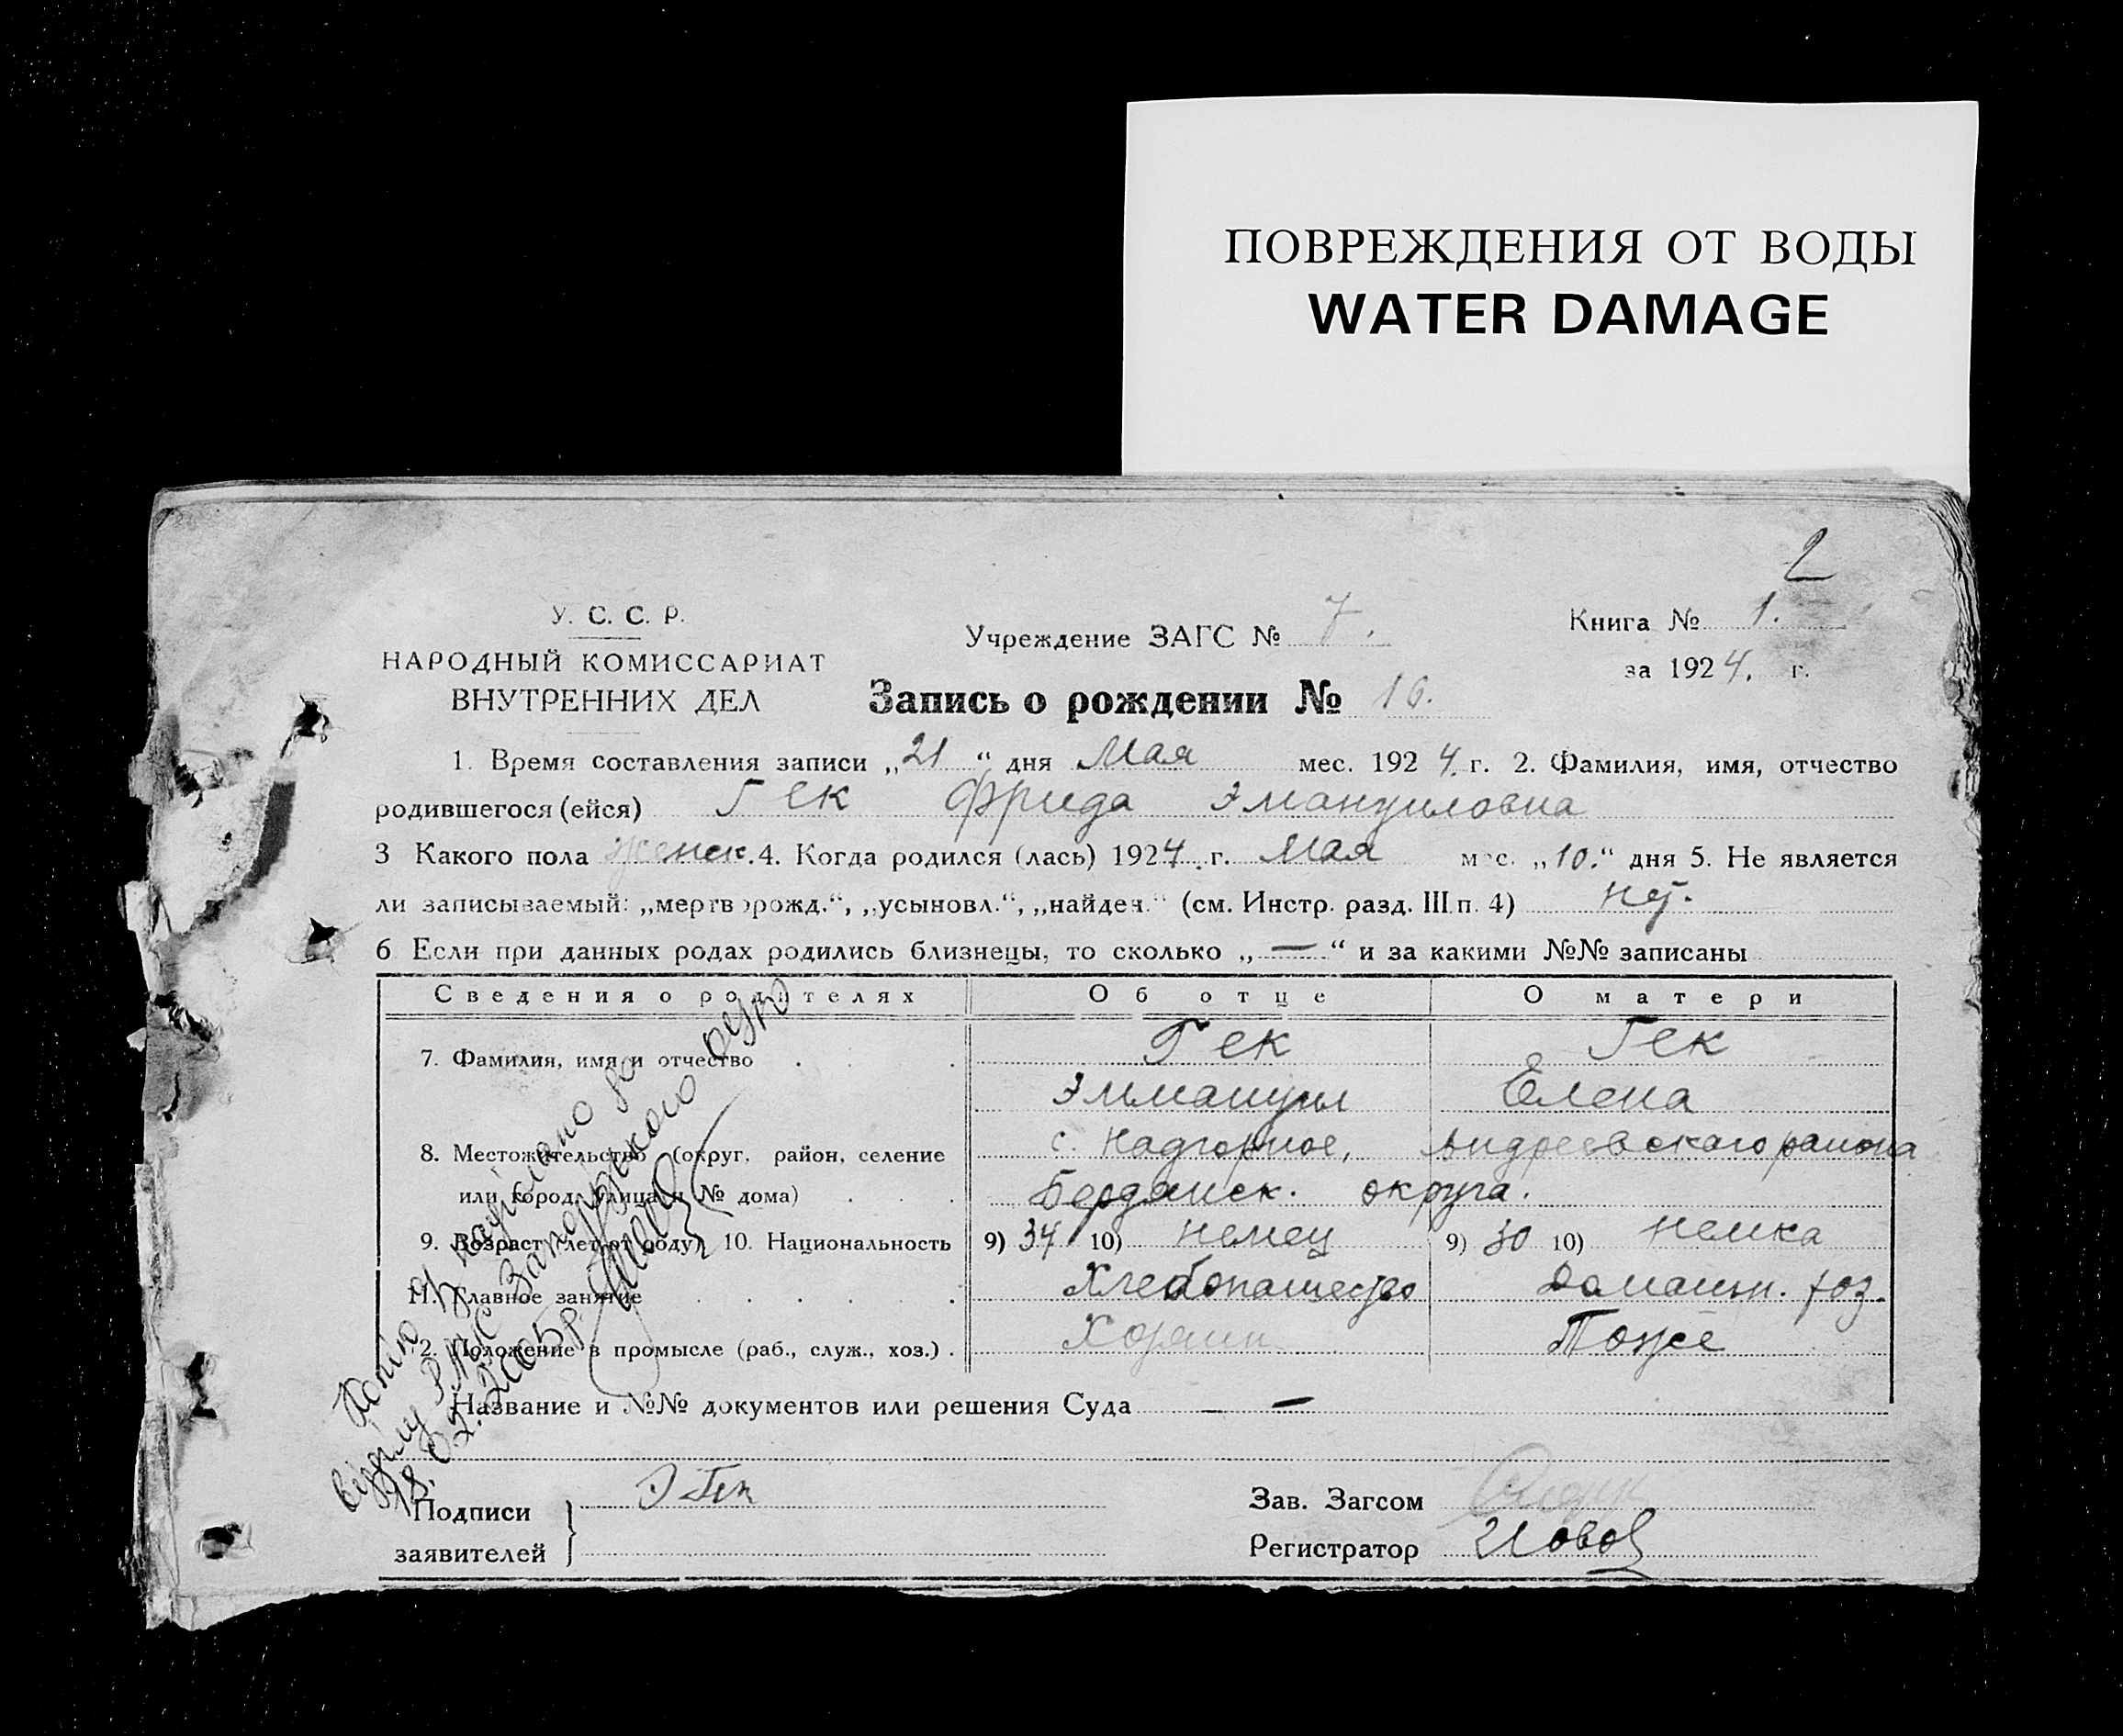 ПОВРЕЖДЕНИЯ ОТ ВОДЫ
WATER DAMAGE
2
У. С. С. Р.
НАРОДНЫЙ КОМИССАРИАТ
ВНУТРЕННИХ ДЕЛ
Учреждение ЗАГС № 7.
Книга № 1.
за 1924. г.
Запись о рождении № 16.
1. Время составления записи „21“ дня Мая мес. 1924. г. 2. Фамилия, имя, отчество
родившегося (ейся) Гек Фрида Эмануиловна
3 Какого пола женск. 4. Когда родился (лась) 1924. г. Мая мес. „10.“ дня 5. Не является
ли записываемый: „мертворожд.“, „усыновл.“, „найден.“ (см. Инстр. разд. III п. 4) нет.
6 Если при данных родах родились близнецы, то сколько „—“ и за какими №№ записаны
Сведения о родителях Об отце О матери
7. Фамилия, имя и отчество . . . Гек Гек
Эммануил Елена
8. Местожительство (округ, район, селение с. Надгорное, Андреевского района
или город, улица и № дома) . . . Бердянск. округа.
9. Возраст (лет от роду) 10. Национальность 9) 34 10) немец 9) 30 10) немка
11. Главное занятие . . . . . . Хлебопашество Домашн. хоз.
12. Положение в промысле (раб., служ., хоз.) . Хозяин Тоже
Название и №№ документов или решения Суда — —
Копію направлено до
відділу РАЦС Запорізького ОУЮ
18.02.2005р
Подписи
заявителей
Э Гек
Зав. Загсом
Регистратор